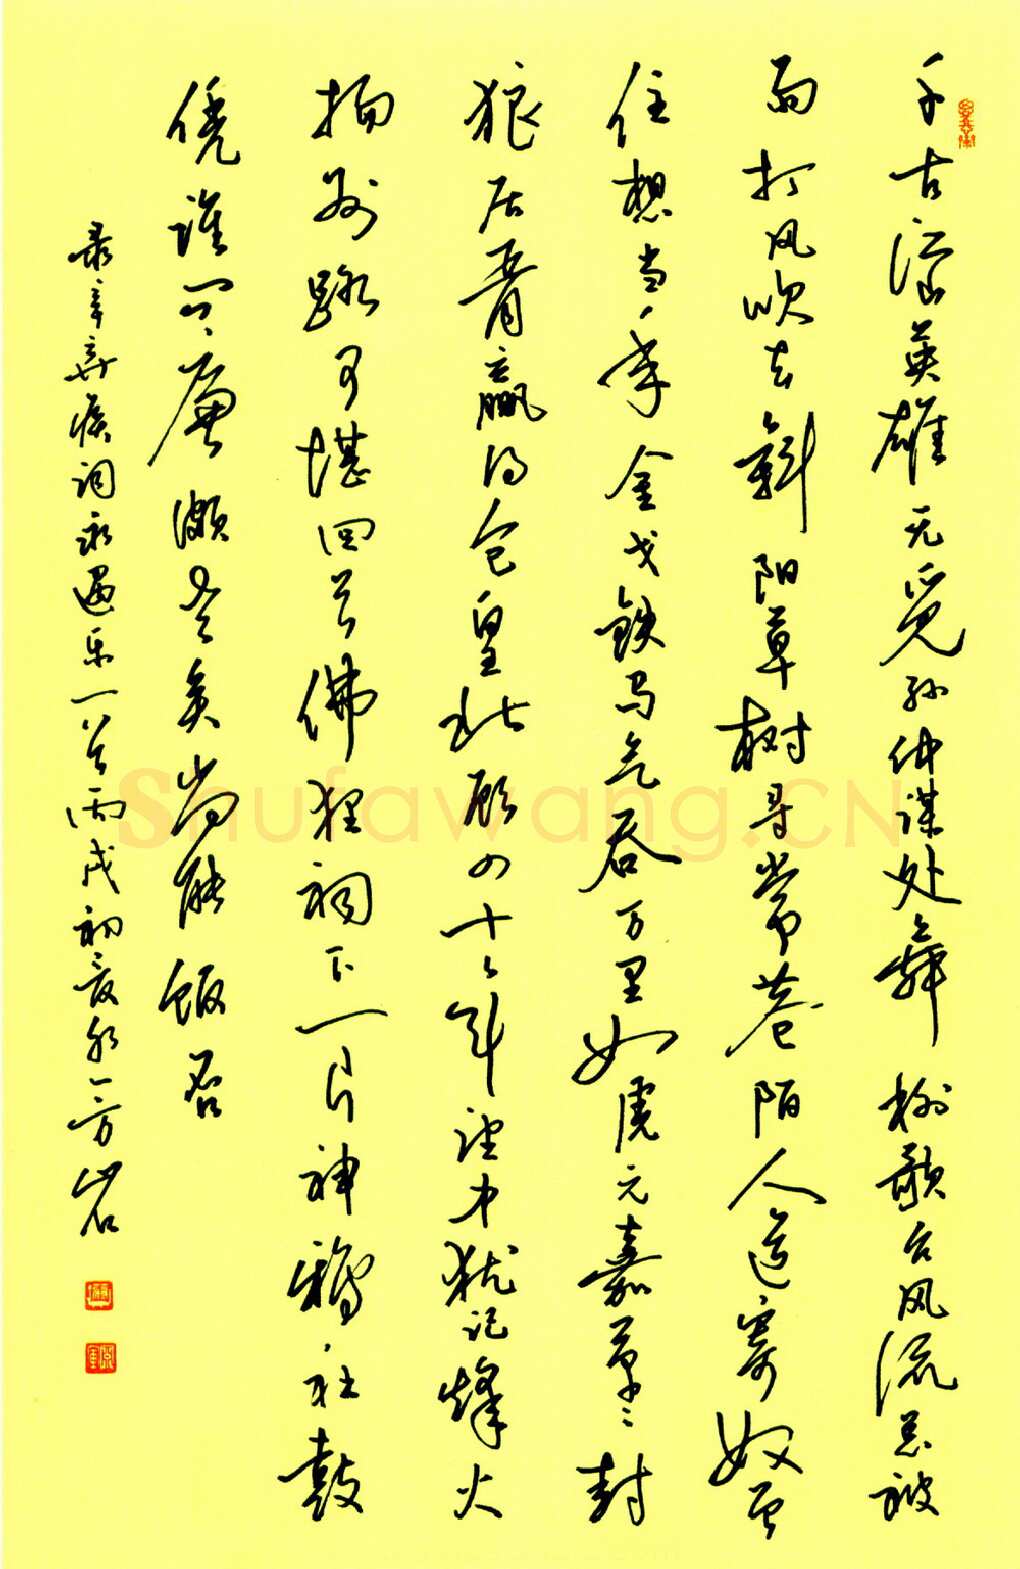 千古江山英雄无觅孙仲谋处舞榭歌台风流总被
雨打风吹去斜阳草树寻常巷陌人道寄奴曾
住想当年金戈铁马气吞万里如虎元嘉草草封
狼居胥赢得仓皇北顾四十三年望中犹记烽火
扬州路可堪回首佛狸祠下一片神鸦社鼓
凭谁问廉颇老矣尚能饭否
录辛弃疾词永遇乐一首丙戌初夏一方岩
Shufawang.CN